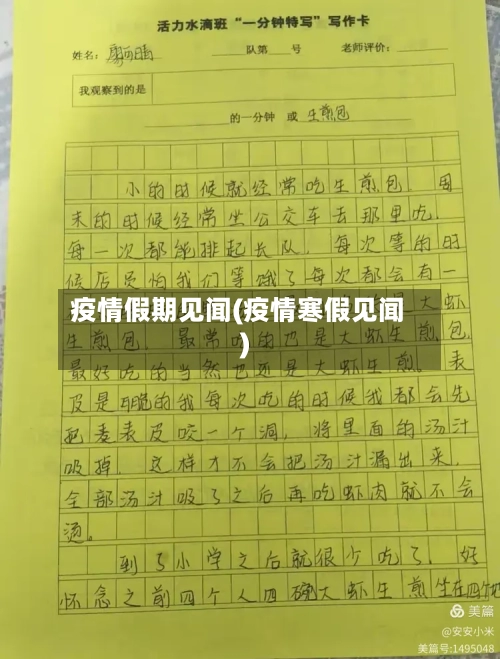 活力水滴班“一分钟特写”写作卡
姓名：廖可晴 队第 号 老师评价：
我观察到的是
的一分钟 或 生煎包
小的时候就经常吃生煎包。周
末的时候经常坐公交车去那里吃，
每一次都能排起长队，每次等的时
候店员怕我们等饿了每次都会有一
大虾
疫情假期见闻(疫情寒假见闻
)
生煎包，最常吃的也是大虾生煎包
最好吃的当然也还是大虾生煎包。表
皮是脆脆的我每次吃的时候我都会先
把麦表皮咬一个洞，将里面的汤汁
吸掉，这样才不会把汤汁漏出来，
全部汤汁吸了之后再吃虾肉就不会
烫。
到了小学之后就很少吃了，好
怀念之前四个人四碗大虾生煎坐在四个
美篇
@安安小米
美篇号:1495048